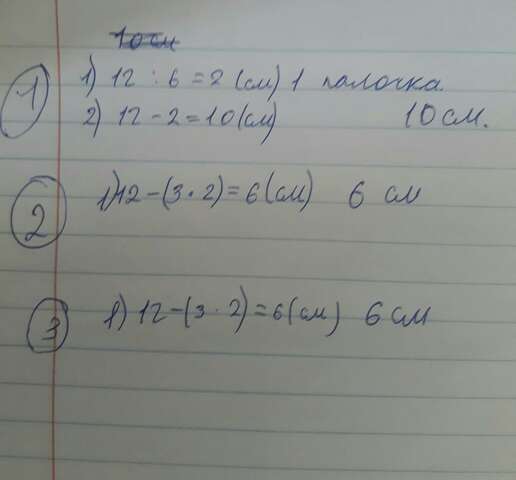 10 см
1
1) 12 : 6 = 2 (см) 1 палочка.
2) 12 - 2 = 10 (см) 10 см.
2
1) 12 - (3 · 2) = 6 (см) 6 см
3
1) 12 - (3 · 2) = 6 (см) 6 см